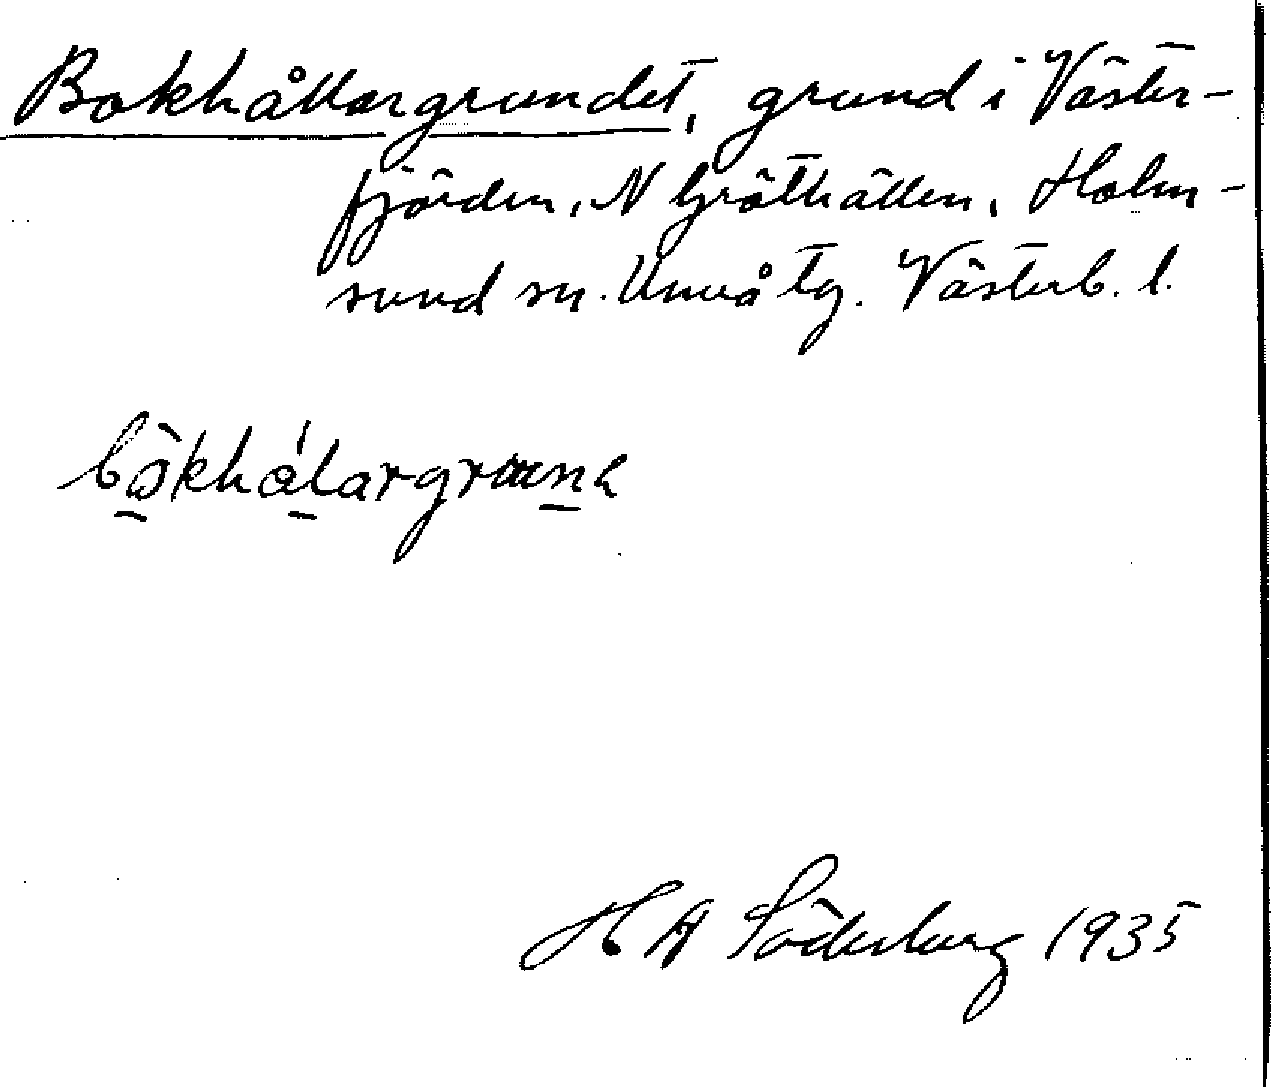 Bokhållargrundet, grund i Väster-
fjärden, N Gråthällen, Holm-
sund sn. Umeå tg. Västerb. l.
H A Söderberg 1935